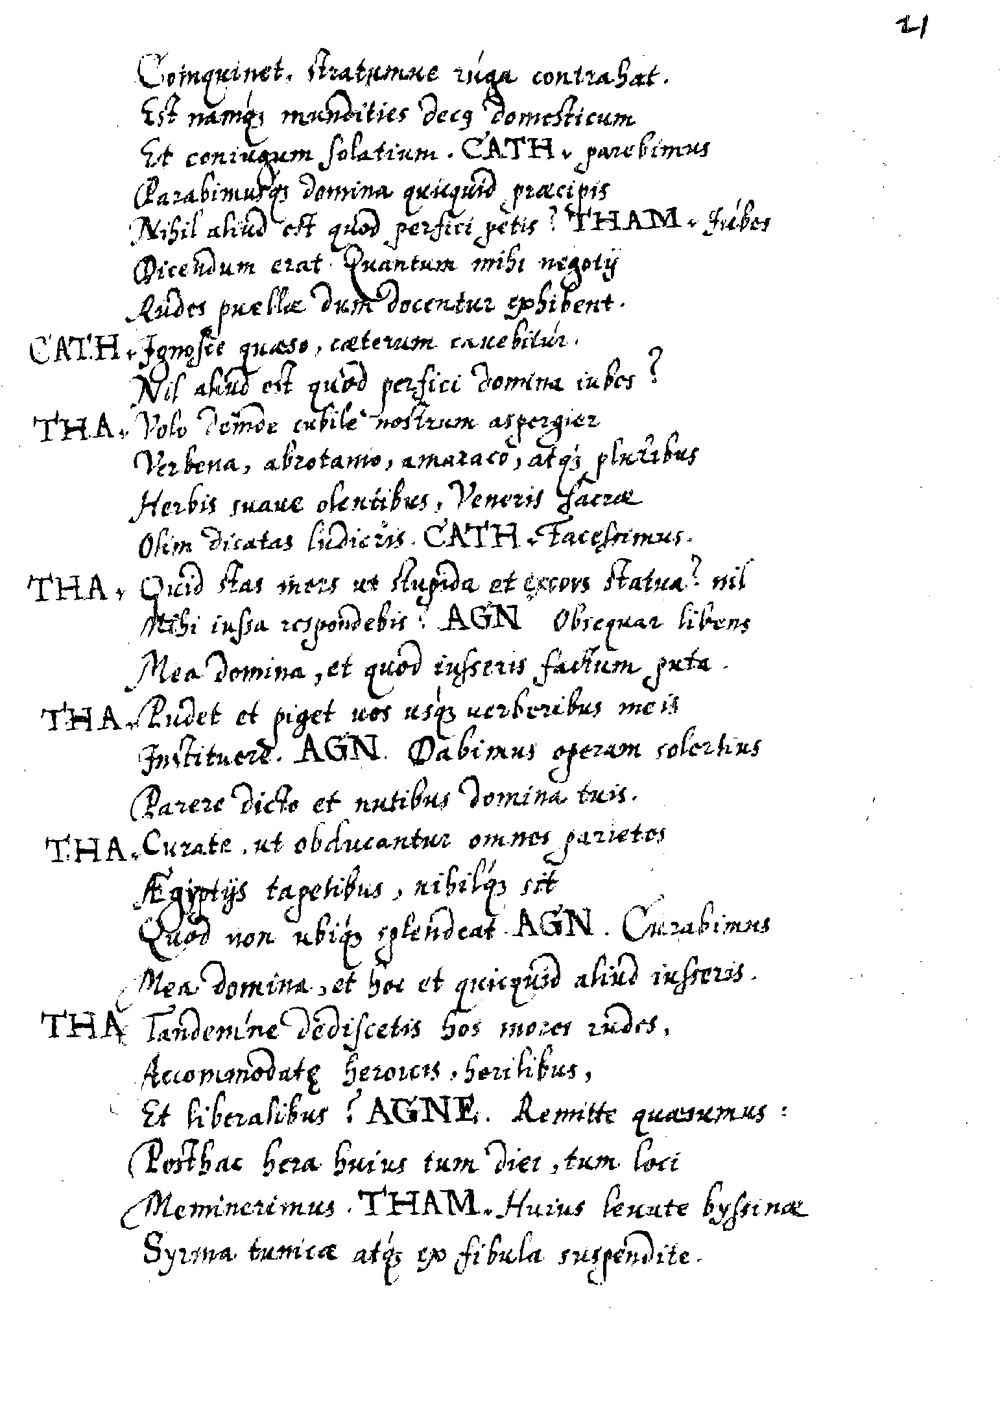 21
Coinquinet, stratumue rúga contrahat.
Est namq́ꝫ mundities decꝯ domesticum
Et coniugum solatium. CATH. parebimus
Parabimusq́ꝫ domina quicquid præcipis
Nihil aliud est quod perfici petis? THAM. Júbes
Dicendum erat. Quantum mihi negotij
Rudes puellæ dum docentur exhibent.
CATH. Ignosce quæso, cæterum cauebitur.
Nil aliud est quod perfici domina iubes?
THA. Volo deinde cubile nostrum aspergier
Verbena, abrotano, amaraco, atq́ꝫ pluribus
Herbis suaue olentibus, Veneris sacræ
Olim dicatas ludicris. CATH. Facessimus.
THA. Quid stas iners ut stupida et excors statua? nil
Mihi iussa respondebis? AGN Obsequar libens
Mea domina, et quod iusseris factum puta.
THA. Pudet et piget uos usq́ꝫ uerberibus meis
Instituere. AGN. Dabimus operam solertius
Parere dicto et nutibus domina tuis.
THA. Curate, ut obducantur omnes parietes
Ægiptijs tapetibus, nihilq́ꝫ sit
Quod non ubiq́ꝫ splendeat. AGN. Curabimus
Mea domina, et hoc et quicquid aliud iusseris.
THA Tandemńe dediscetis hos mores rudes,
Accommodatę heroicis, herilibus,
Et liberalibus? AGNE. Remitte quæsumus:
Posthac hera huius tum diei, tum loci
Meminerimus. THAM. Huius leuate byssinæ
Syrma tunicæ atq́ꝫ ex fibula suspendite.